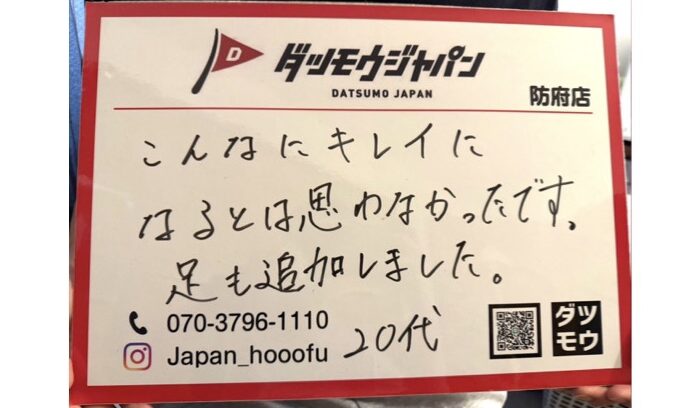 D
ダツモウジャパン
DATSUMO JAPAN
防府店
こんなにキレイに
なるとは思わなかったです。
足も追加しました。
070-3796-1110
Japan_hooofu
20代
ダツ
モウ